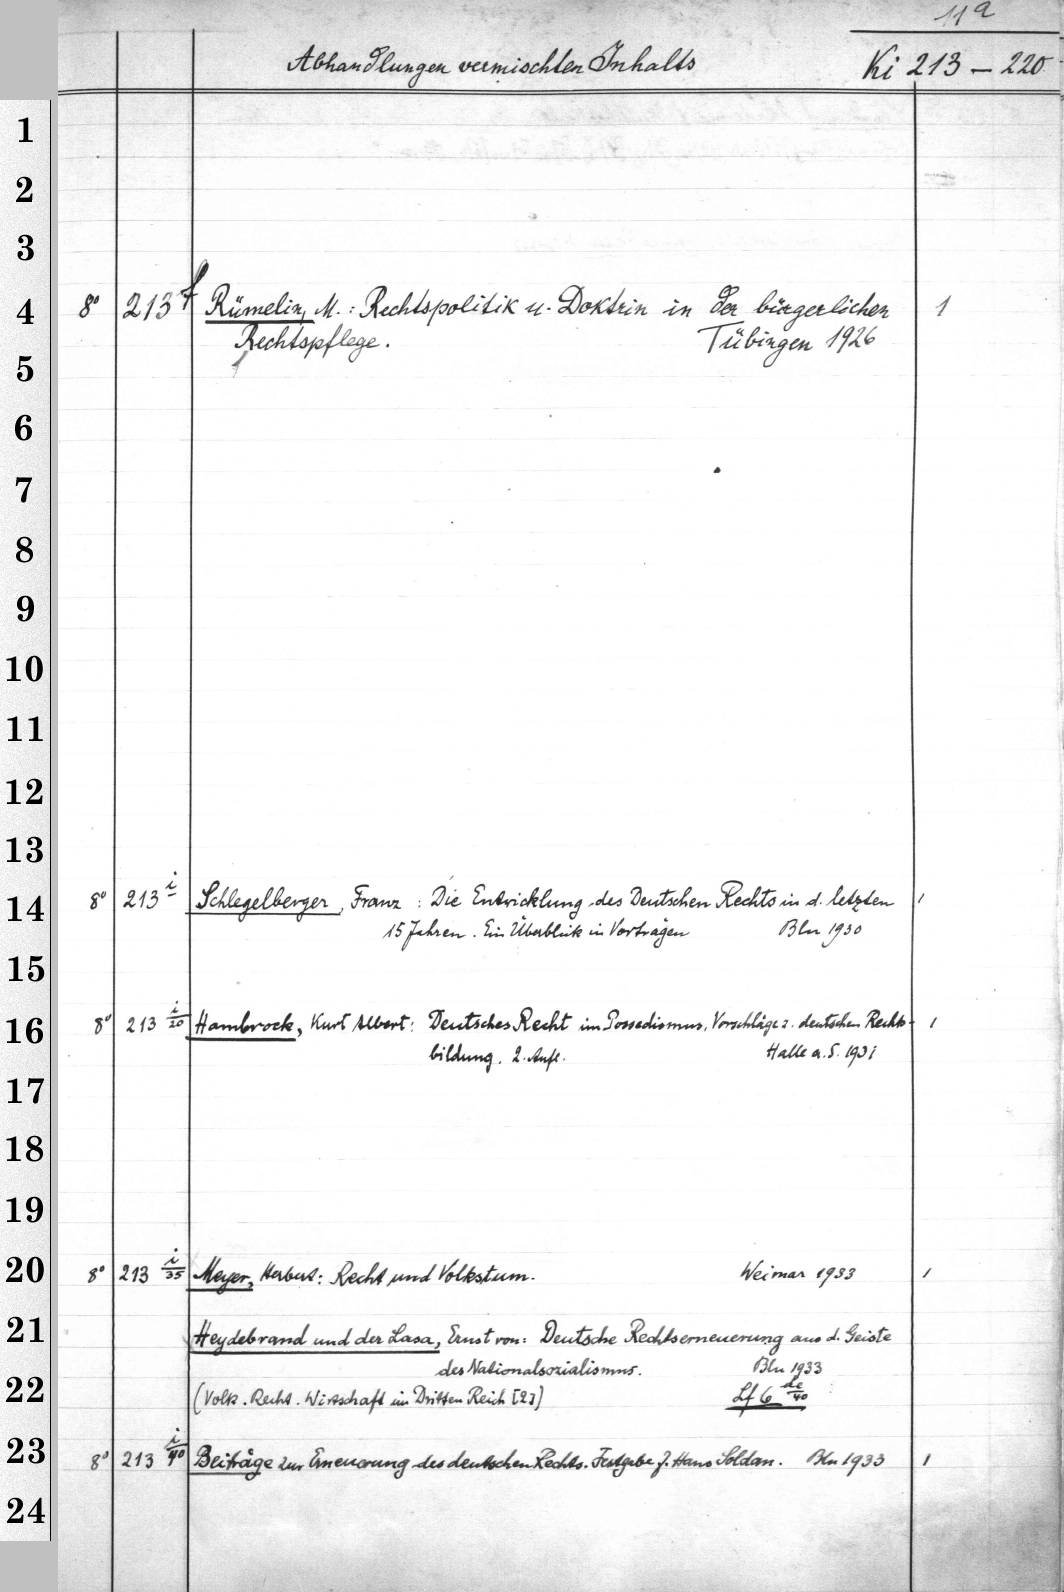 11a
Abhandlungen vermischten Inhalts Ki 213 – 220
1
2
3
4 8° 213 f Rümelin, M.: Rechtspolitik u. Doktrin in der bürgerlichen 1
Rechtspflege. Tübingen 1926
5
6
7
8
9
10
11
12
13
14 8° 213 i Schlegelberger, Franz: Die Entwicklung des Deutschen Rechts in d. letzten 1
15 Jahren. Ein Überblick in Vorträgen Bln 1930
15
16 8° 213 i/20 Hambrock, Kurt Albert: Deutsches Recht im Possedismus. Vorschläge z. deutschen Rechts- 1
bildung. 2. Aufl. Halle a. S. 1931
17
18
19
20 8° 213 i/35 Meyer, Herbert: Recht und Volkstum. Weimar 1933 1
21 Heydebrand und der Lasa, Ernst von: Deutsche Rechtserneuerung aus d. Geiste
des Nationalsozialismus. Bln 1933
22 (Volk. Recht. Wirtschaft im Dritten Reich [2]) Lf 6 de/40
23 8° 213 i/40 Beiträge zur Erneuerung des deutschen Rechts. Festgabe f. Hans Soldan. Bln 1933 1
24